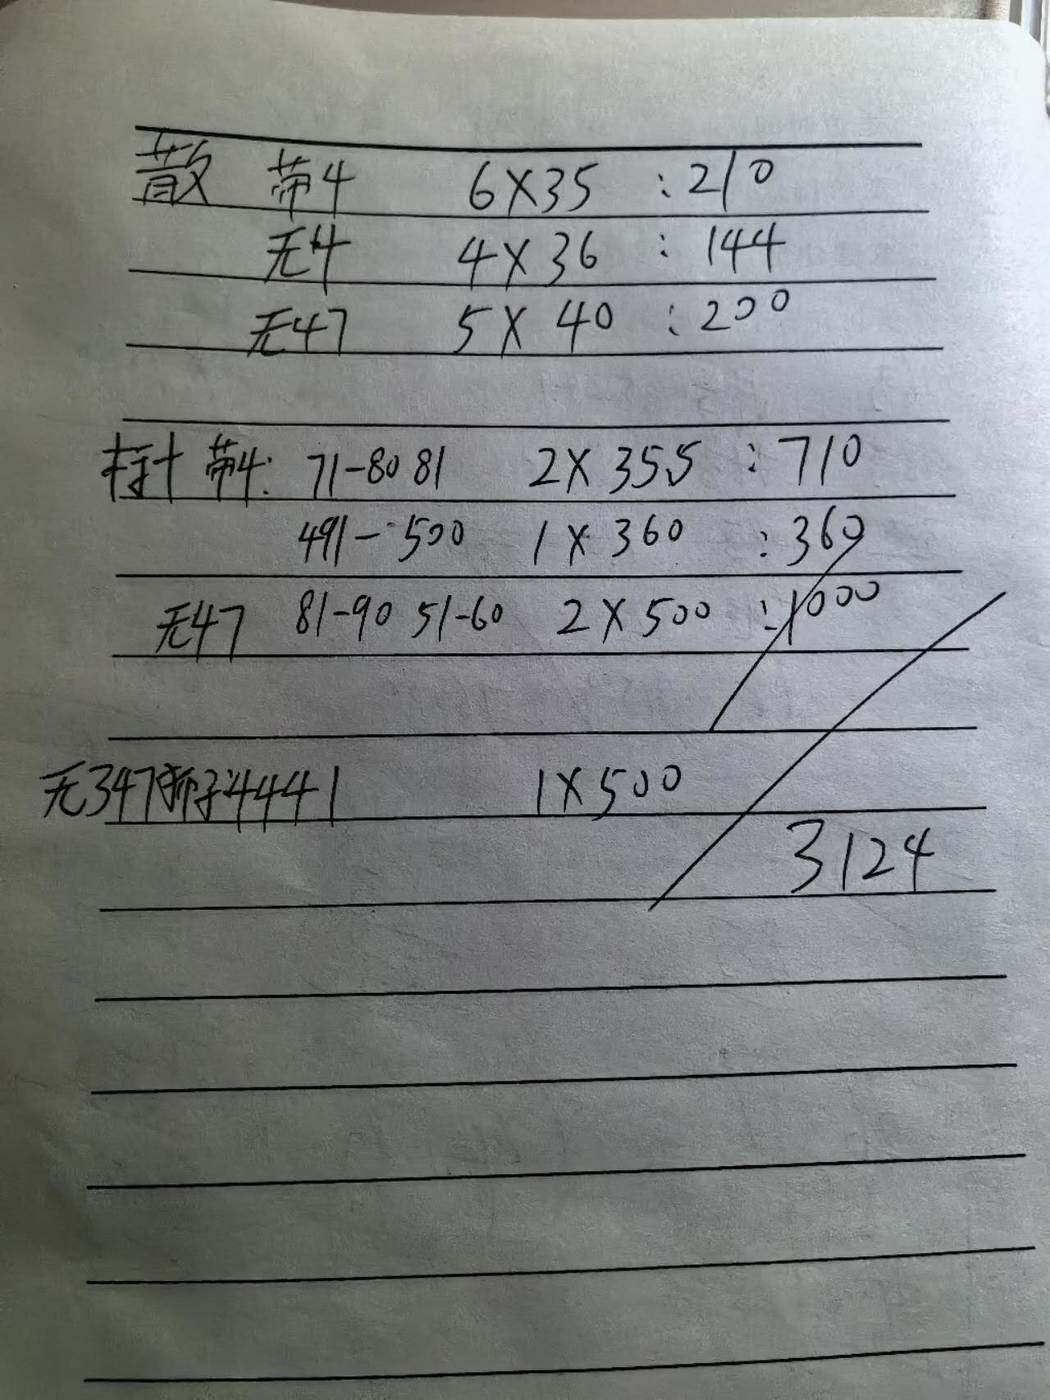 散 带4 6X35 :210
无4 4X36 :144
无47 5X40 :200
标针 带4: 71-80 81 2X355 :710
491-500 1X360 :360
无47 81-90 51-60 2X500 :1000
无347狮子4441 1X500
3124